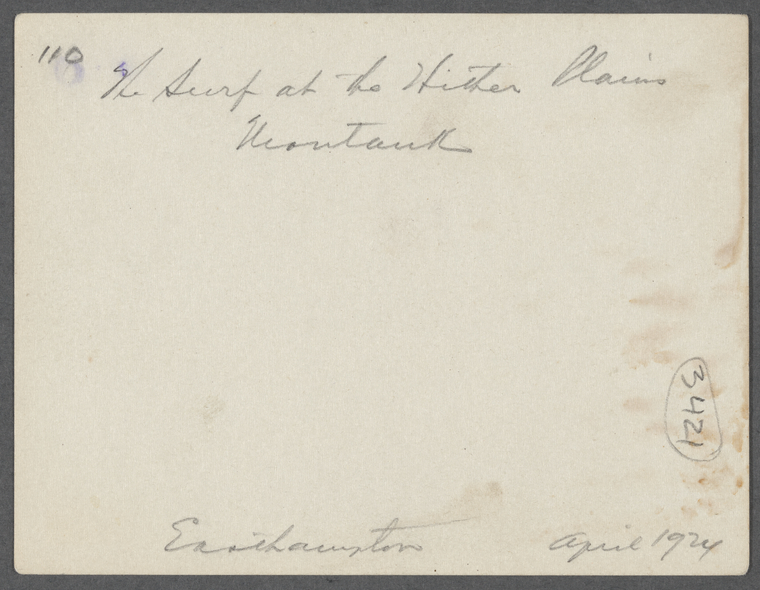 110
The Surf at the Hither Plains
Montauk
3421
Easthampton April 1924